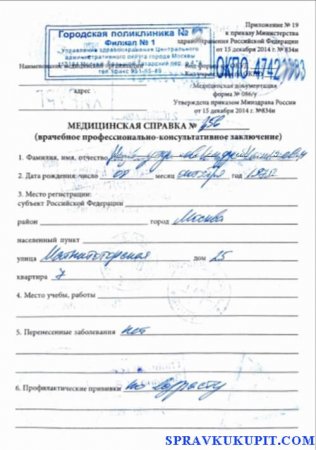 Городская поликлиника №
Филиал № 1
Управления здравоохранения Центрального
административного округа города Москвы
Приложение № 19
к приказу Министерства
здравоохранения Российской Федерации
от 15 декабря 2014 г. № 834н
Наименование
ОКПО 47421083
адрес
Медицинская документация
форма № 086/у
Утверждена приказом Минздрава России
от 15 декабря 2014 г. №834н
МЕДИЦИНСКАЯ СПРАВКА №
(врачебное профессионально-консультативное заключение)
1. Фамилия, имя, отчество
2. Дата рождения: число месяц октября
3. Место регистрации:
субъект Российской Федерации
район город Москва
населенный пункт
улица Магнитогорская дом 15
квартира 7
4. Место учебы, работы
5. Перенесенные заболевания нет
6. Профилактические прививки по возрасту
SPRAVKUKUPIT.COM